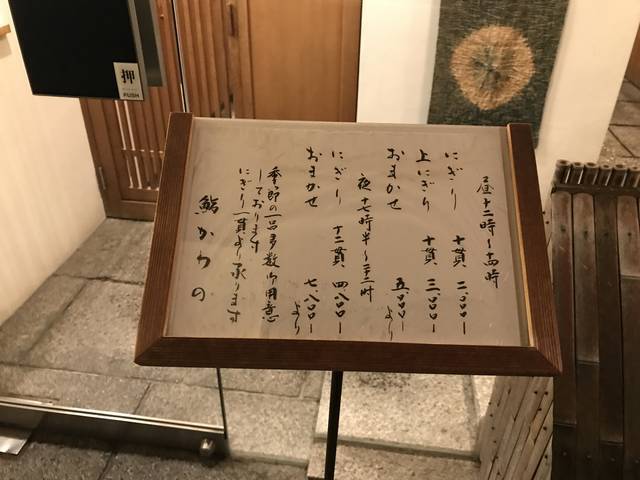 昼十二時〜十四時
にぎり 十貫 二、〇〇〇ー
上にぎり 十貫 三、〇〇〇ー
おまかせ 五、〇〇〇ーより
夜十七時半〜二十二時
にぎり 十二貫 四、八〇〇ー
おまかせ 七、八〇〇ーより
季節の一品多数御用意
しております
にぎり一貫より承ります
鮨かわの
押
PUSH